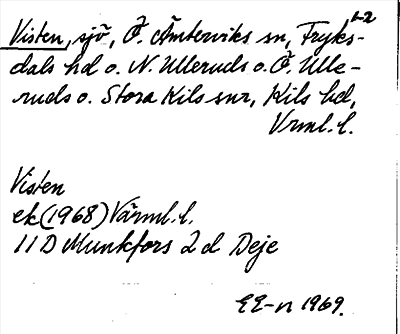 1-2
Visten, sjö, Ö. Ämterviks sn, Fryks-
dals hd o. N. Ulleruds o. Ö. Ulle-
ruds o. Stora Kils snr, Kils hd,
Vrml. l.
Visten
ek (1968) Värml. l.
11 D Munkfors 2 d Deje
EE-n 1969.